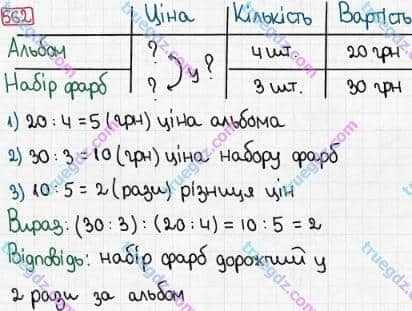 562 Ціна Кількість Вартість
Альбом ? 4 шт. 20 грн
у ?
Набір фарб ? 3 шт. 30 грн
1) 20 : 4 = 5 (грн) ціна альбома
2) 30 : 3 = 10 (грн) ціна набору фарб
3) 10 : 5 = 2 (рази) різниця цін
Вираз: (30 : 3) : (20 : 4) = 10 : 5 = 2
Відповідь: набір фарб дорожчий у
2 рази за альбом
truegdz.com